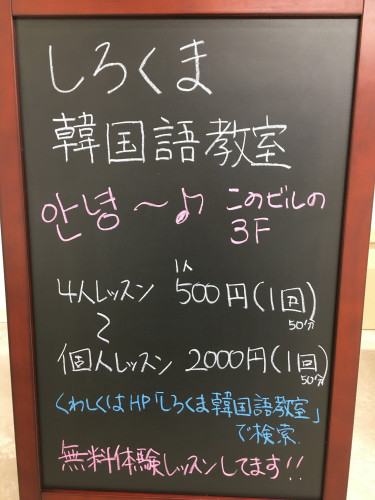 しろくま
韓国語教室
안녕〜♪ このビルの
3F
1人
4人レッスン 500円(1回)
50分
〜
個人レッスン 2000円(1回)
50分
くわしくはHP「しろくま韓国語教室」
で検索
無料体験レッスンしてます!!